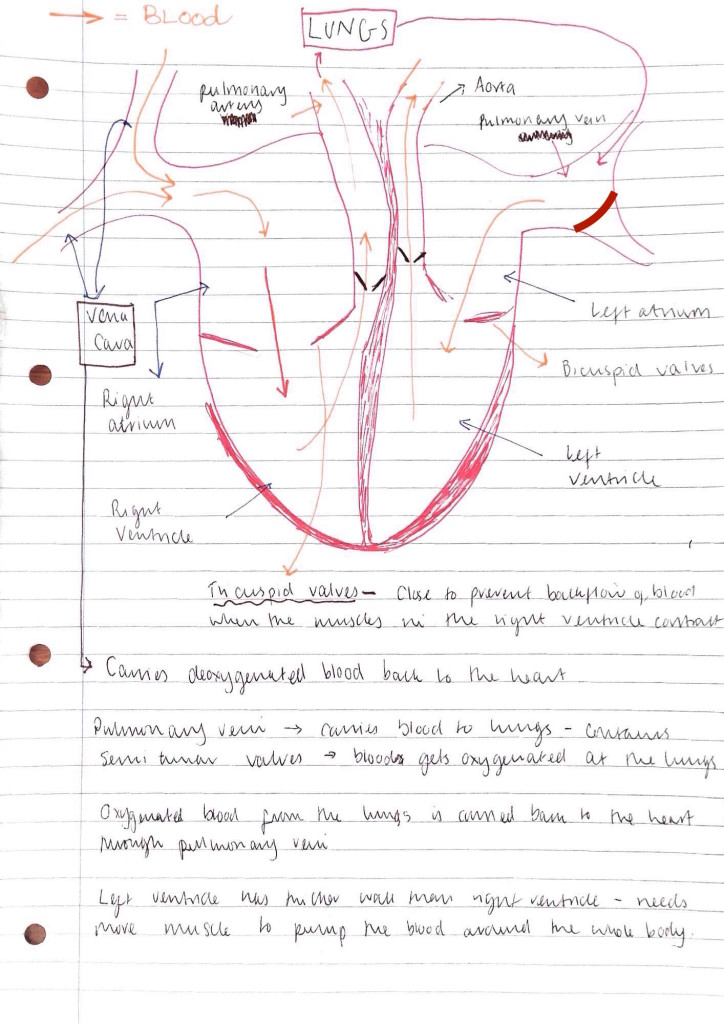 = BLOOD
LUNGS
pulmonary
artery
Aorta
pulmonary vein
Vena
Cava
Left atrium
Bicuspid valves
Right
atrium
Left
ventricle
Right
Ventricle
Tricuspid valves - Close to prevent backflow of blood
when the muscles in the right ventricle contract
Carries deoxygenated blood back to the heart
Pulmonary vein → carries blood to lungs - contains
Semi lunar valves → blood gets oxygenated at the lungs
Oxygenated blood from the lungs is carried back to the heart
through pulmonary vein
Left ventricle has thicker wall than right ventricle - needs
more muscle to pump the blood around the whole body.